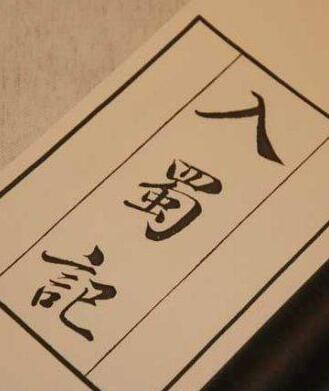 入蜀記